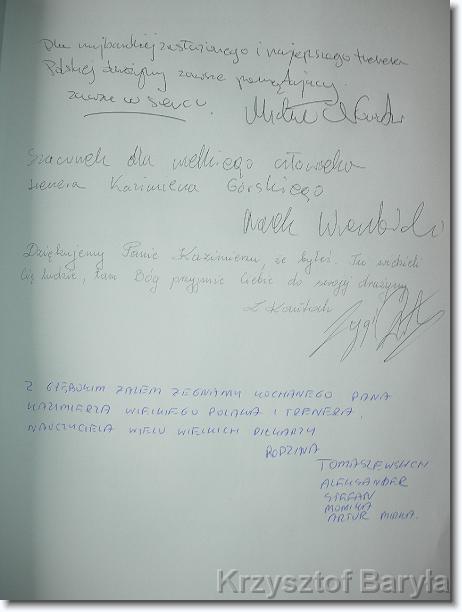 Dla najbardziej zasłużonego i najlepszego trenera
Polskiej drużyny zawsze pamiętający.
zawsze w sercu.
Szacunek dla wielkiego człowieka
trenera Kazimierza Górskiego
Marek
Dziękujemy Panie Kazimierzu, że byłeś. Tu wielbili
Cię ludzie, tam Bóg przyjmie Ciebie do swojej drużyny
Z GŁĘBOKIM ŻALEM ŻEGNAMY KOCHANEGO PANA
KAZIMIERZA WIELKIEGO POLAKA I TRENERA.
NAUCZYCIELA WIELU WIELKICH PIŁKARZY
RODZINA
TOMASZEWSKICH
ALEKSANDER
STEFAN
MONIKA
ARTUR MIRKA.
Krzysztof Baryła